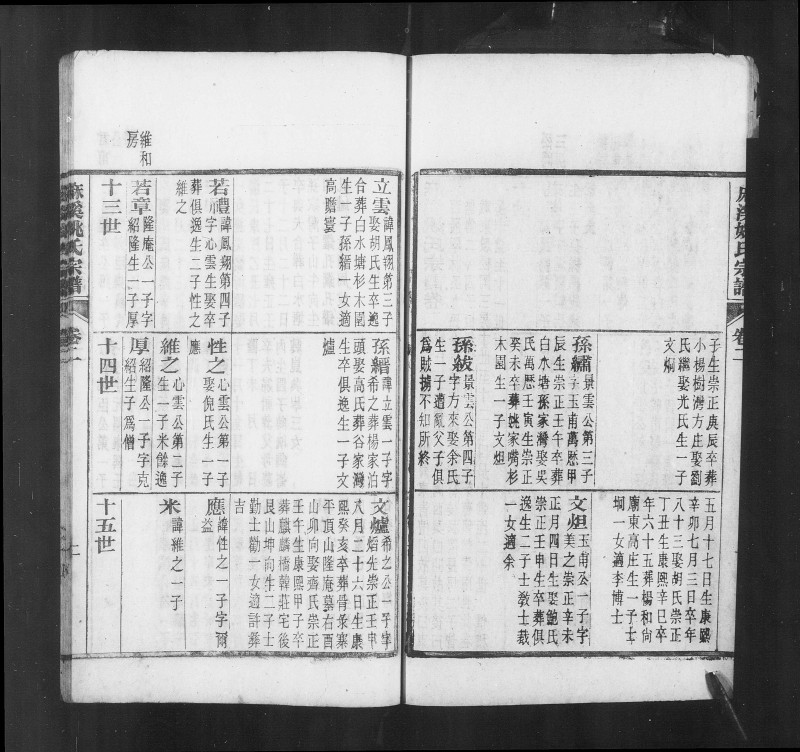 麻溪姚氏宗譜
卷二
子生崇正庚辰卒葬
小楊樹灣方庄娶劉
氏繼娶光氏生一子
文炯
孫繻景雲公第三子
字玉甫萬厯甲
辰生崇正壬午卒葬
白水塘孫家灣娶吳
氏萬厯壬寅生崇正
癸未卒葬姚家嘴杉
木園生一子文炟
孫紱景雲公第四子
字方來娶余氏
生一子遭亂父子俱
爲賊擄不知所終
五月十七日生康熙
辛卯七月三日卒年
八十三娶胡氏崇正
丁丑生康熙辛巳卒
年六十五葬楊和尚
廟東高庄生一子士
埛一女適李博士
文炟玉甫公一子字
美之崇正辛未
正月四日生娶鮑氏
崇正壬申生卒葬俱
逸生二子士敎士裁
一女適余
立雲諱鳳翔第三子
娶胡氏生卒逸
合葬白水塘杉木園
生一子孫縉一女適
高贍寰
若禮諱鳳翔第四子
字心雲生娶卒
葬俱逸生二子性之
維之
孫縉諱立雲一子字
希之葬楊家泊
頭娶高氏葬谷家灣
生卒俱逸生一子文
爐
性之心雲公第一子
娶倪氏生一子
應
維之心雲公第二子
生一子米餘逸
厚紹隆公一子字克
紹生子爲僧
文爐希之公一子字
焰先崇正壬申
八月二十六日生康
熙癸亥卒葬骨彔寨
平頂山隆庵墓右酉
山卯向娶齊氏崇正
壬午生康熙甲子卒
葬麒麟橋韓莊宅後
艮山坤向生二子士
勤士勸一女適許彝
吉
應諱性之一子字爾
益
米諱維之一子
維和
房
十三世
若章隆庵公一子字
紹隆生一子厚
十四世
十五世
麻溪姚氏宗譜
卷二